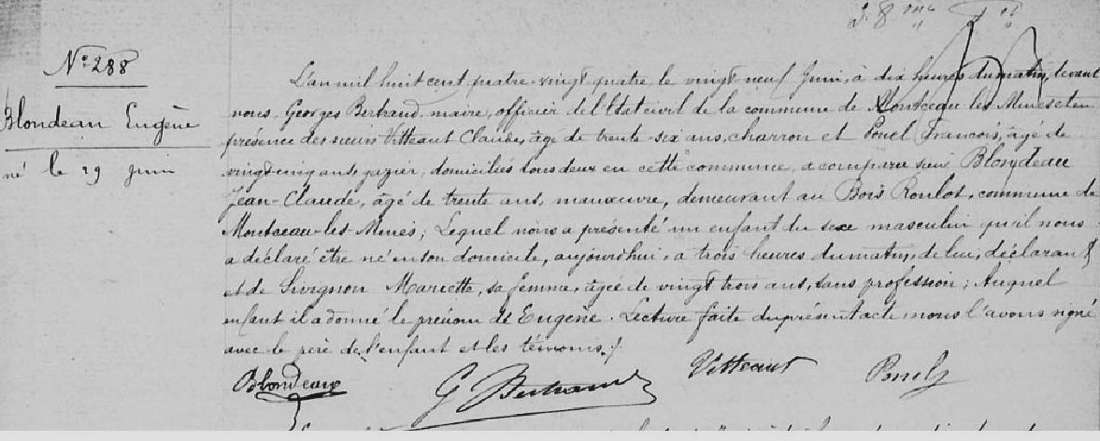 N° 288
Blondeau Eugène
né le 29 juin
L'an mil huit cent quatre-vingt quatre le vingt neuf Juin, à dix heures du matin, devant
nous, Georges Bertrand, maire, officier de l'Etat civil de la commune de Montceau-les-Mines et en
présence des sieurs Vitteaut Claude, âgé de trente-six ans, charron et François, âgé de
vingt-cinq ans, gazier, domiciliés tous deux en cette commune, a comparu sieur Blondeau
Jean-Claude, âgé de trente ans, manœuvre, demeurant au Bois Roulot, commune de
Montceau-les-Mines; Lequel nous a présenté un enfant du sexe masculin qu'il nous
a déclaré être né en son domicile, aujourd'hui, à trois heures du matin, de lui, déclarant
et de Sivignon Mariette, sa femme, âgée de vingt trois ans, sans profession; Auquel
enfant il a donné le prénom de Eugène. Lecture faite du présent acte nous l'avons signé
avec le père de l'enfant et les témoins.
Blondeau G Bertrand Vitteaut